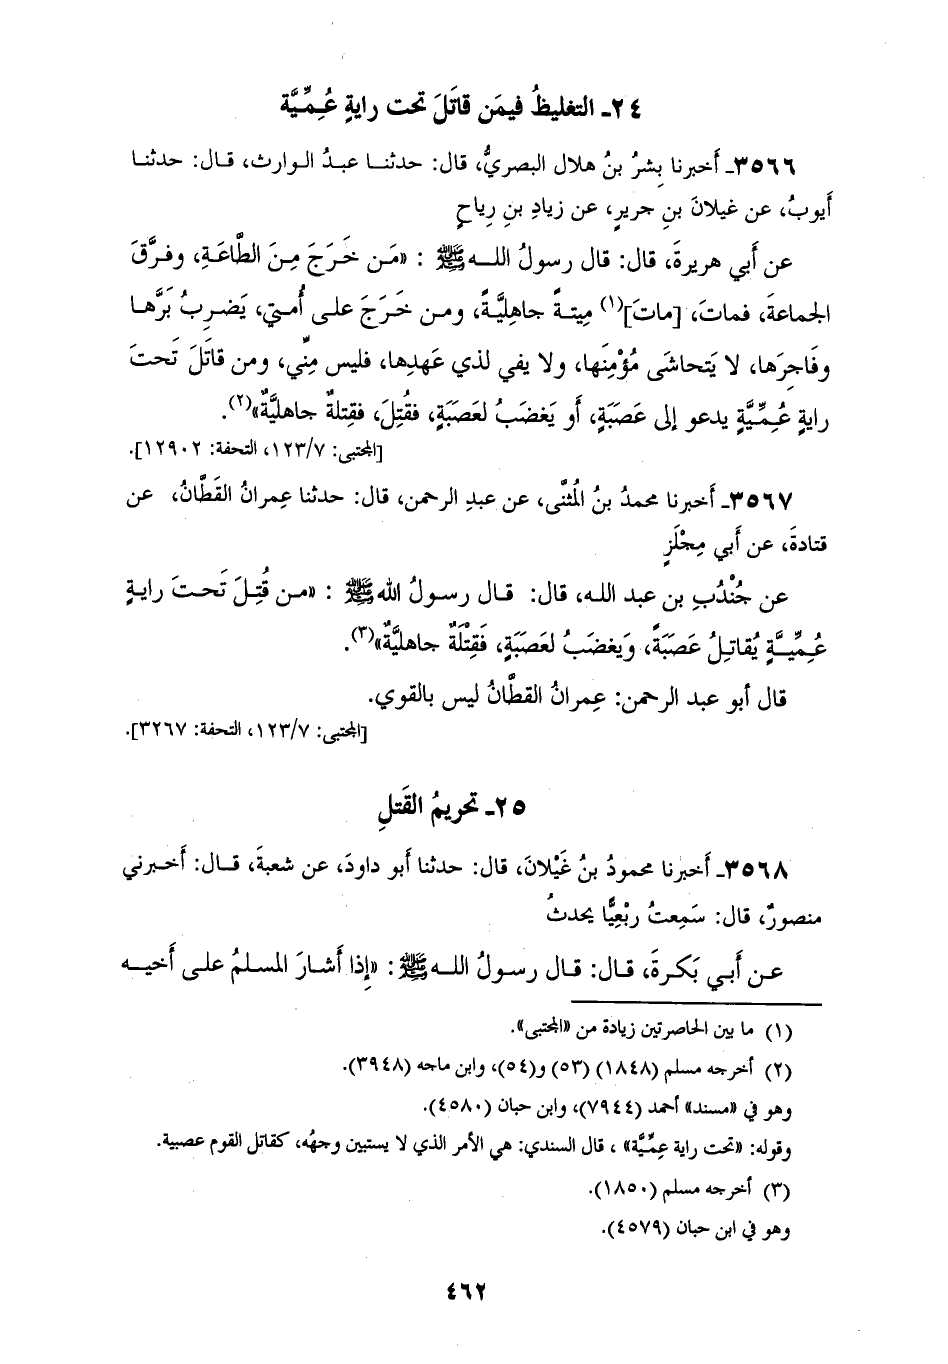 ٢٤ـ التغليظُ فيمَن قاتَلَ تحت رايةٍ عُـمِّـيَّة
٣٥٦٦ـ أخبرنا بِشرُ بنُ هلال البصريُّ، قال: حدثنـا عبدُ الـوارث، قـال: حدثنـا
أيوبُ، عن غيلانَ بنِ جريرٍ، عن زيادِ بنِ رِياحٍ
عن أبي هريرةَ، قال: قال رسولُ اللـهﷺ : «مَـن خَـرَجَ مِـنَ الطَّاعَـةِ، وفـرَّقَ
الجماعةَ، فماتَ، [ماتَ](١) مِيتـةً جاهليَّـةً، ومـن خَـرَجَ علـى أُمـتي، يَضـرِبُ بَرَّهـا
وفـاجرَها، لا يَتحاشَى مُؤْمِنَها، ولا يفي لذي عَهدِها، فليس مِنِّي، ومن قاتَلَ تَحتَ
رايةٍ عُـمِّـيَّةٍ يدعو إلى عَصَبَةٍ، أو يَغضَبُ لعَصَبَةٍ، فقُتِلَ، فقِتلةٌ جاهليَّةٌ»(٢).
[المجتبى: ١٢٣/٧، التحفة: ١٢٩٠٢].
٣٥٦٧ـ أخبرنا محمدُ بنُ المُثنَّى، عن عبدِ الرحمن، قال: حدثنا عِمرانُ القَطَّانُ، عن
قتادةَ، عن أبي مِجْلَزٍ
عن جُنْدُبِ بن عبد اللـه، قال: قـال رسـولُ اللهﷺ : «مـن قُتِـلَ تَحـتَ رايـةٍ
عُـمِّـيَّـةٍ يُقاتـِلُ عَصَبَةً، ويَغضَبُ لعَصَبَةٍ، فَقِتْلَةٌ جاهليَّةٌ»(٣).
قال أبو عبد الرحمن: عِمرانُ القطَّانُ ليس بالقوي.
[المجتبى: ١٢٣/٧، التحفة: ٣٢٦٧].
٢٥ـ تحريمُ القَتلِ
٣٥٦٨ـ أخبرنا محمودُ بنُ غَيْلانَ، قال: حدثنا أبو داودَ، عن شعبةَ، قـال: أخـبرني
منصورٌ، قال: سَمِعتُ رِبْعِيًّا يحدثُ
عـن أبـي بَكـرةَ، قـال: قـال رسـولُ اللـهﷺ: «إذا أشـارَ المسـلمُ علـى أخيـه
(١) ما بين الحاصرتين زيادة من «المجتبى».
(٢) أخرجه مسلم (١٨٤٨) (٥٣) و(٥٤)، وابن ماجه (٣٩٤٨).
وهو في «مسند» أحمد (٧٩٤٤)، وابن حبان (٤٥٨٠).
وقوله: «تحت راية عِمِّيَّة» ، قال السندي: هي الأمر الذي لا يستبين وجهُه، كقاتل القوم عصبية.
(٣) أخرجه مسلم (١٨٥٠).
وهو في ابن حبان (٤٥٧٩).
٤٦٢